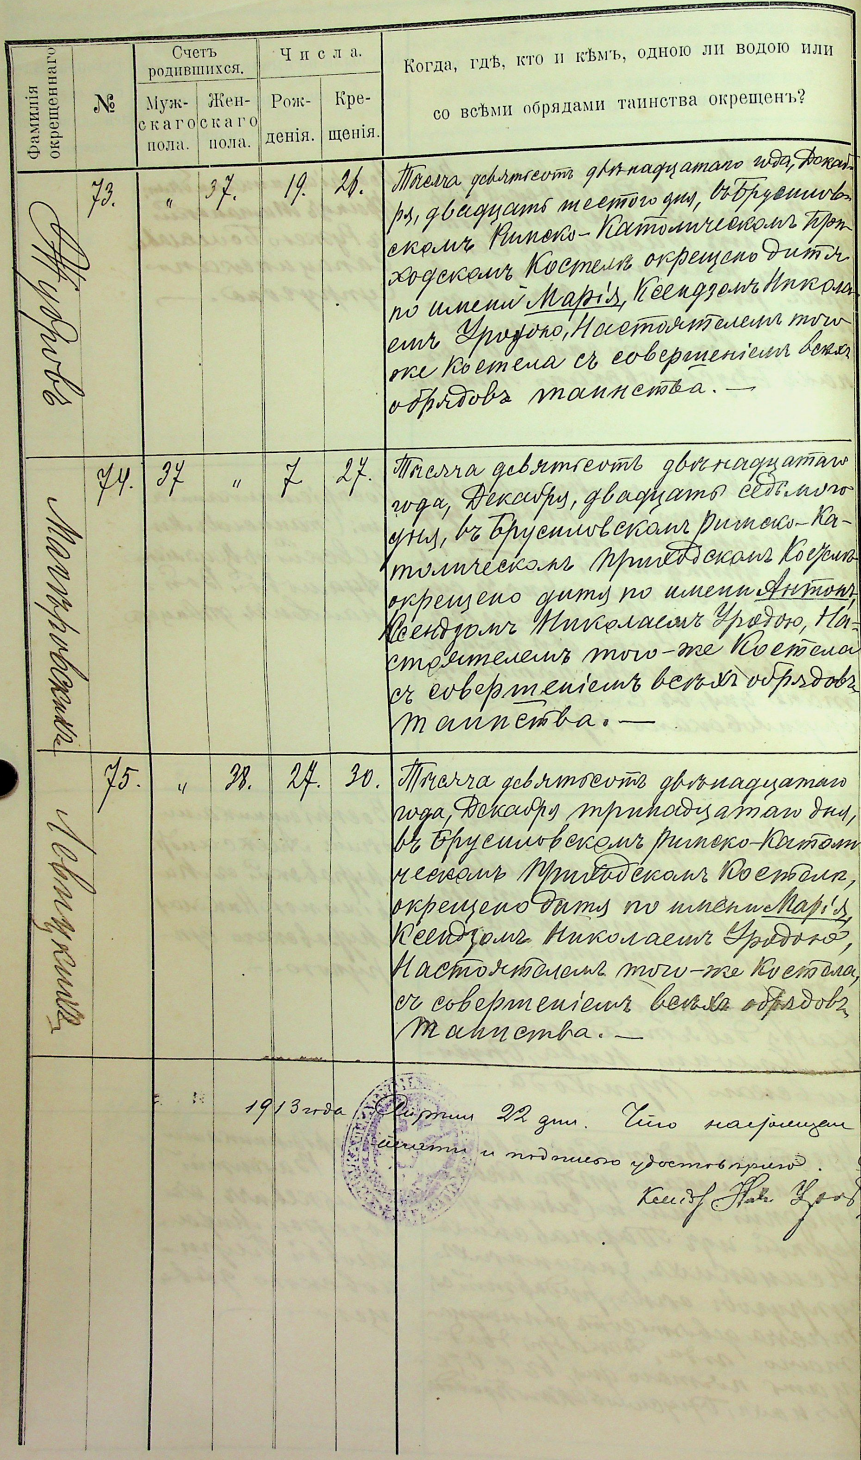 Фамилія окрещеннаго
№
Счетъ родившихся.
Муж-скаго пола.
Жен-скаго пола.
Числа.
Рож-денія.
Кре-щенія.
Когда, гдѣ, кто и кѣмъ, одною ли водою или
со всѣми обрядами таинства окрещенъ?
73. " 37. 19. 26.
Тысяча девятьсотъ двѣнадцатаго года, Декаб-
ря, двадцать шестого дня, въ Брусилов-
скомъ Римско-Католическомъ При-
ходскомъ Костелѣ окрещено дитя
по имени Марія, Ксендзомъ Никола-
емъ Уродою, Настоятелемъ того
же Костела съ совершеніемъ всѣхъ
обрядовъ таинства. —
74. 37 " 7 27.
Тысяча девятьсотъ двѣнадцатаго
года, Декабря, двадцать седьмого
дня, въ Брусиловскомъ Римско-Ка-
толическомъ Приходскомъ Костелѣ
окрещено дитя по имени Антонъ,
Ксендзомъ Николаемъ Уродою, На-
стоятелемъ того-же Костела
съ совершеніемъ всѣхъ обрядовъ
таинства. —
75. " 38. 27. 30.
Тысяча девятьсотъ двѣнадцатаго
года, Декабря тринадцатаго дня,
въ Брусиловскомъ Римско-Катали
ческомъ Приходскомъ Костелѣ,
окрещено дитя по имени Марія,
Ксендзомъ Николаемъ Уродою,
Настоятелемъ того-же Костела,
съ совершеніемъ всѣхъ обрядовъ
таинства. —
1913 года 22 дня. Что
печати и подписью удостовѣряю.
Ксендз Ник Урод